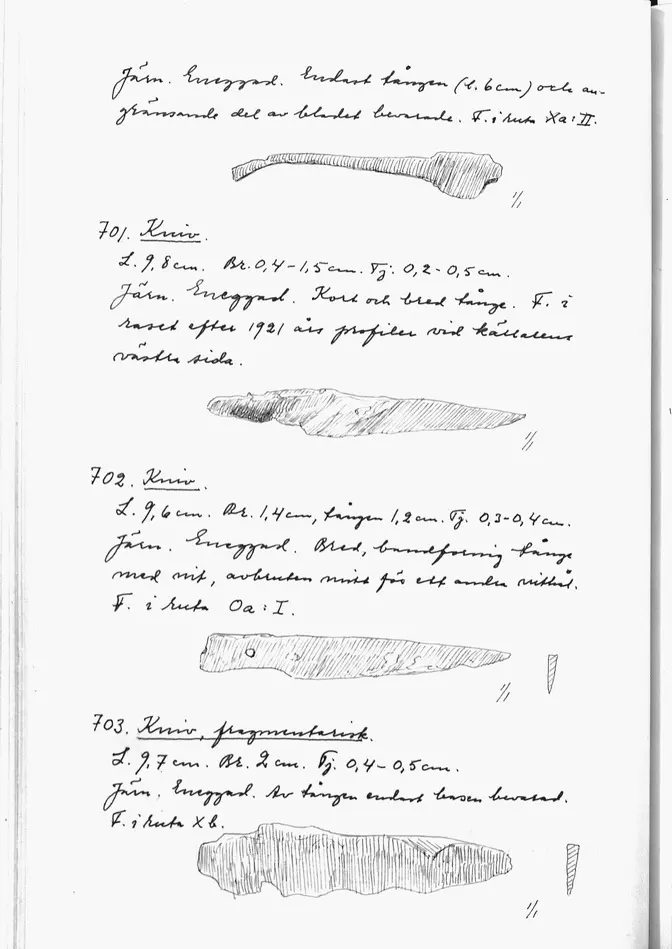 Järn. Eneggad. Endast tången (l. 6 cm) och an-
gränsande del av bladet bevarade. F. i ruta Xa:II.
1/1
701. Kniv.
L. 9,8 cm. Br. 0,4-1,5 cm. Tj. 0,2-0,5 cm.
Järn. Eneggad. Kort och bred tånge. F. i
raset efter 1921 års profiler vid källarens
västra sida.
1/1
702. Kniv.
L. 9,6 cm. Br. 1,4 cm, tången 1,2 cm. Tj. 0,3-0,4 cm.
Järn. Eneggad. Bred, bandformig tånge
med nit, avbruten mitt för ett andra nithål.
F. i ruta Oa:I.
1/1
703. Kniv, fragmentarisk.
L. 9,7 cm. Br. 2 cm. Tj. 0,4-0,5 cm.
Järn. Eneggad. Av tången endast basen bevarad.
F. i ruta Xb.
1/1